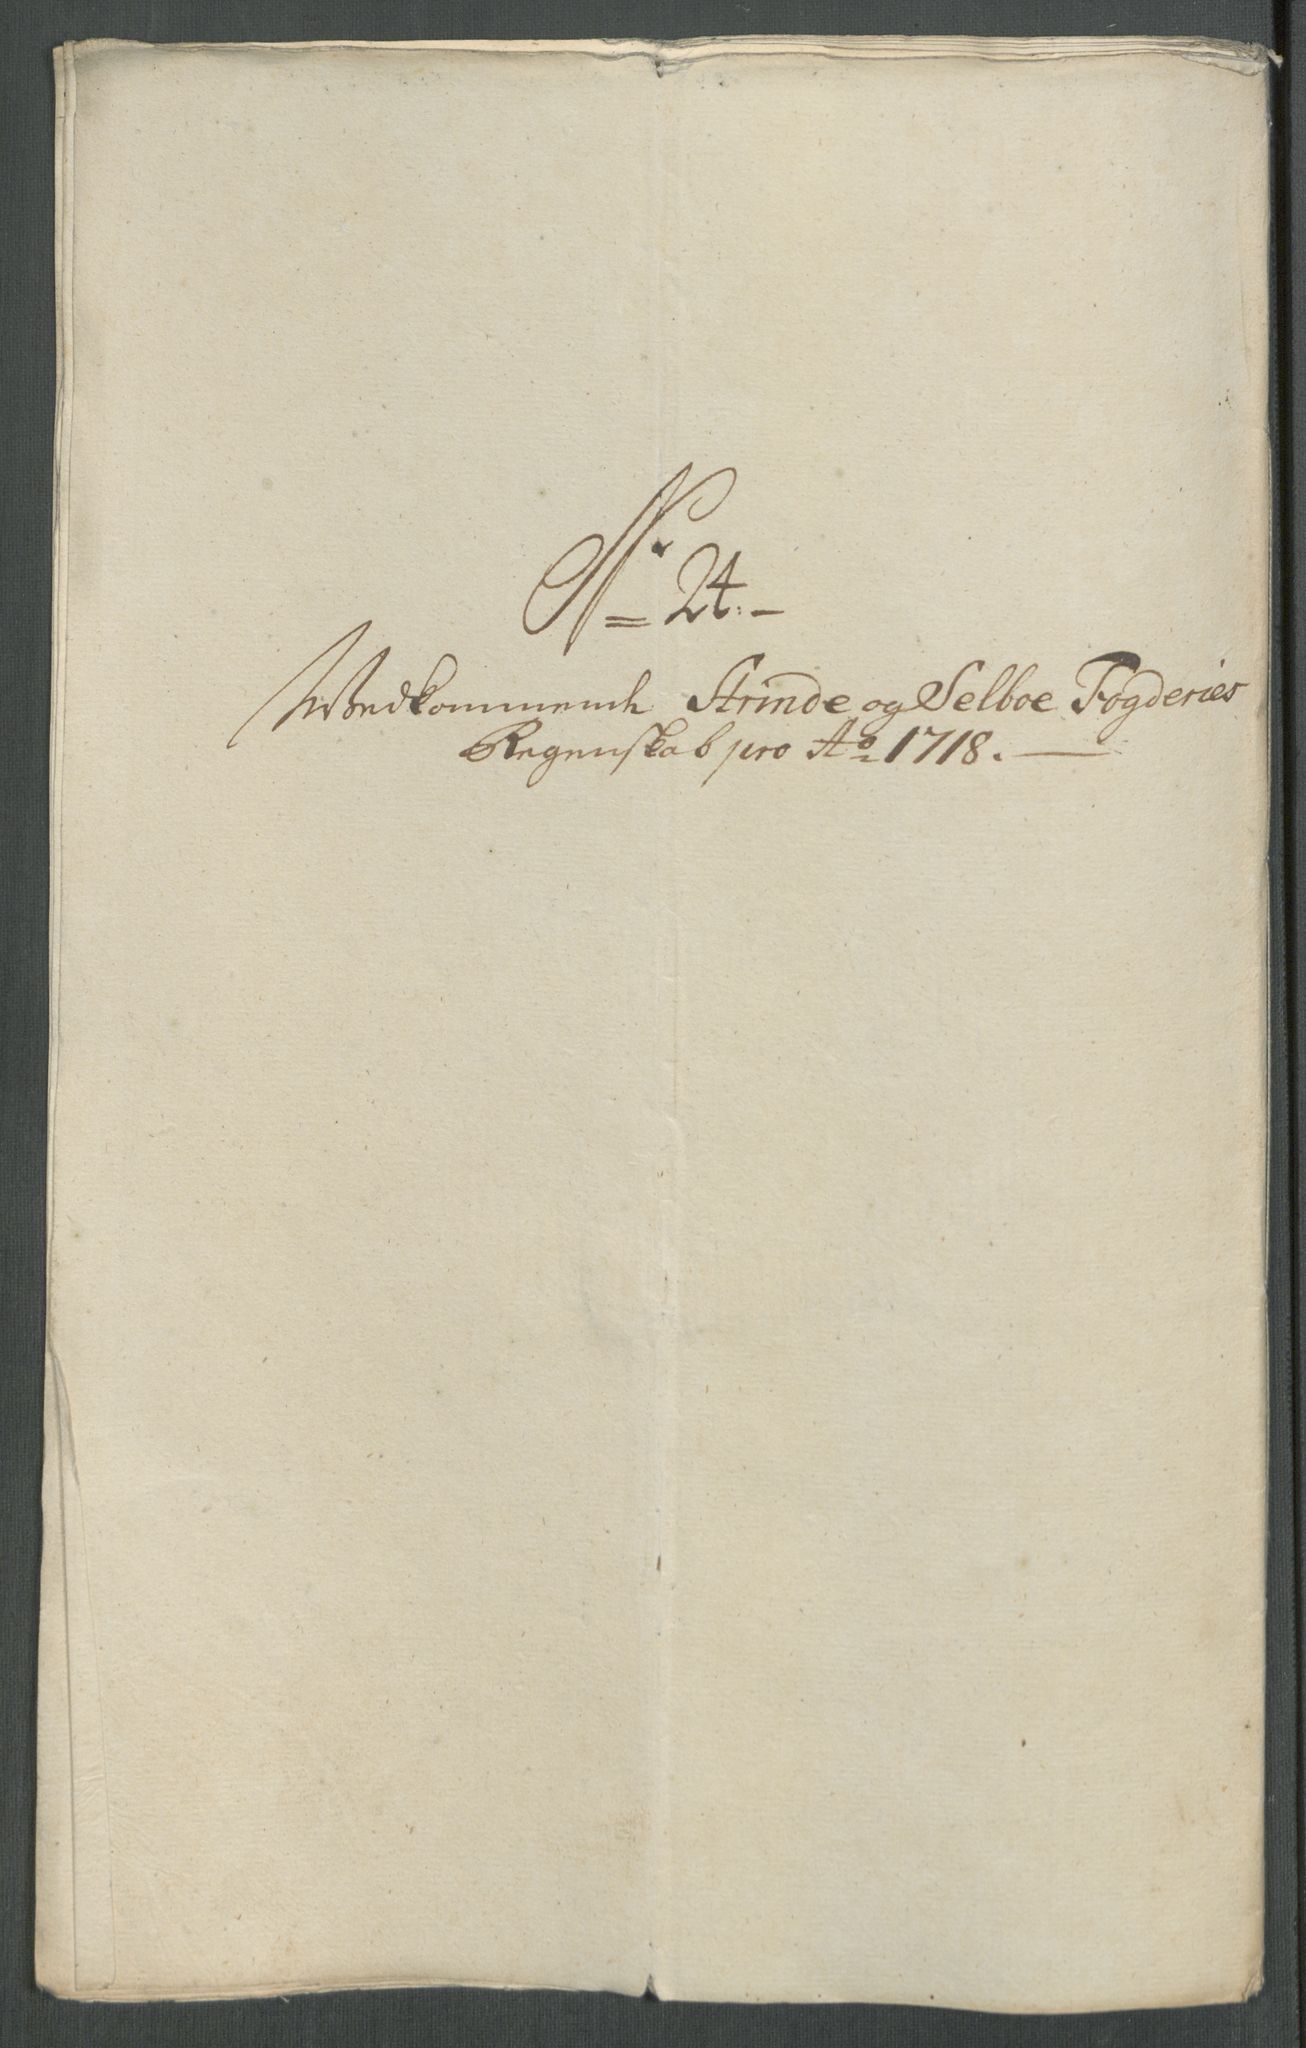 No 24.
Wedkommende Strinde og Selboe Fogderies
Regenskab pro Ao 1718.